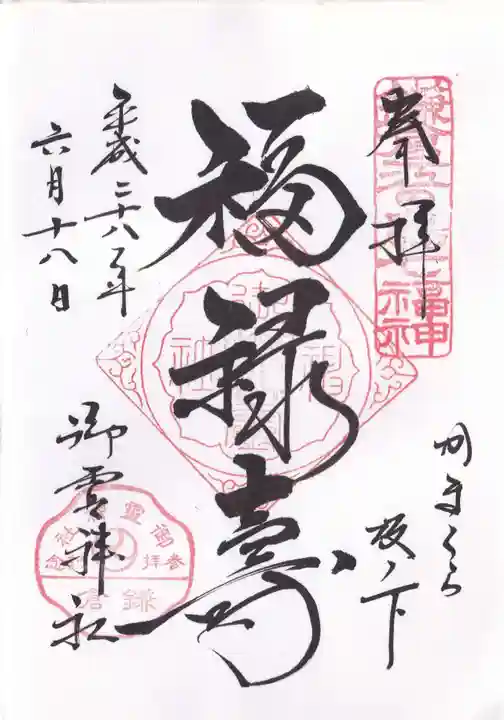 奉拝
かまくら
坂ノ下
福禄寿
平成二十八年
六月十八日
御霊神社
御霊神社
参拝記念
鎌倉